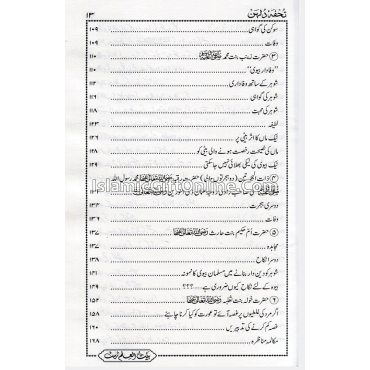 تحفۂ دُلہن
۱۳
سوکن کی گواہی ۱۰۹
وفات ۱۰۹
③ حضرت زینب بنت محمد ﷺ ۱۱۰
”وفادار بیوی“ ۱۱۰
شوہر کے ساتھ وفاداری ۱۱۲
شوہر کی گواہی ۱۱۶
شوہر کی محبت ۱۱۸
لطیفہ ۱۲۳
نیک ماں کا اثر بیٹی پر ۱۲۶
ماں کی نصیحت رخصت ہونے والی بیٹی کو ۱۲۷
نیک بیوی کی نیکی بھلائی نہیں جا سکتی ۱۲۹
④ ذات الہجرتین (دو ہجرتوں والی) حضرت رقیہ رضی اللہ تعالیٰ عنہا بنت محمد رسول اللہ
IslamicGiftOnline.Com
دوسری ہجرت
وفات ۱۳۶
⑤ حضرت اُم حکیم بنت حارث رضی اللہ تعالیٰ عنہا ۱۳۷
مجاہدہ ۱۳۷
دوسرا نکاح ۱۳۸
شوہر کو دین دار بنانے میں مسلمان بیوی کا نمونہ ۱۴۱
بیوہ کے لئے نکاح کیوں ضروری ہے ؟؟؟
⑥ حضرت خولہ بنت ثعلبہ رضی اللہ تعالیٰ عنہا ۱۵۴
اگر مرد کی غلطیوں پر غصہ آئے تو عورت کو کیا کرنا چاہئے ۱۵۸
غصہ کم کرنے کی تدبیریں ۱۶۰
مکالمہ مناظرہ ۱۶۸
بیت العلم ٹرسٹ